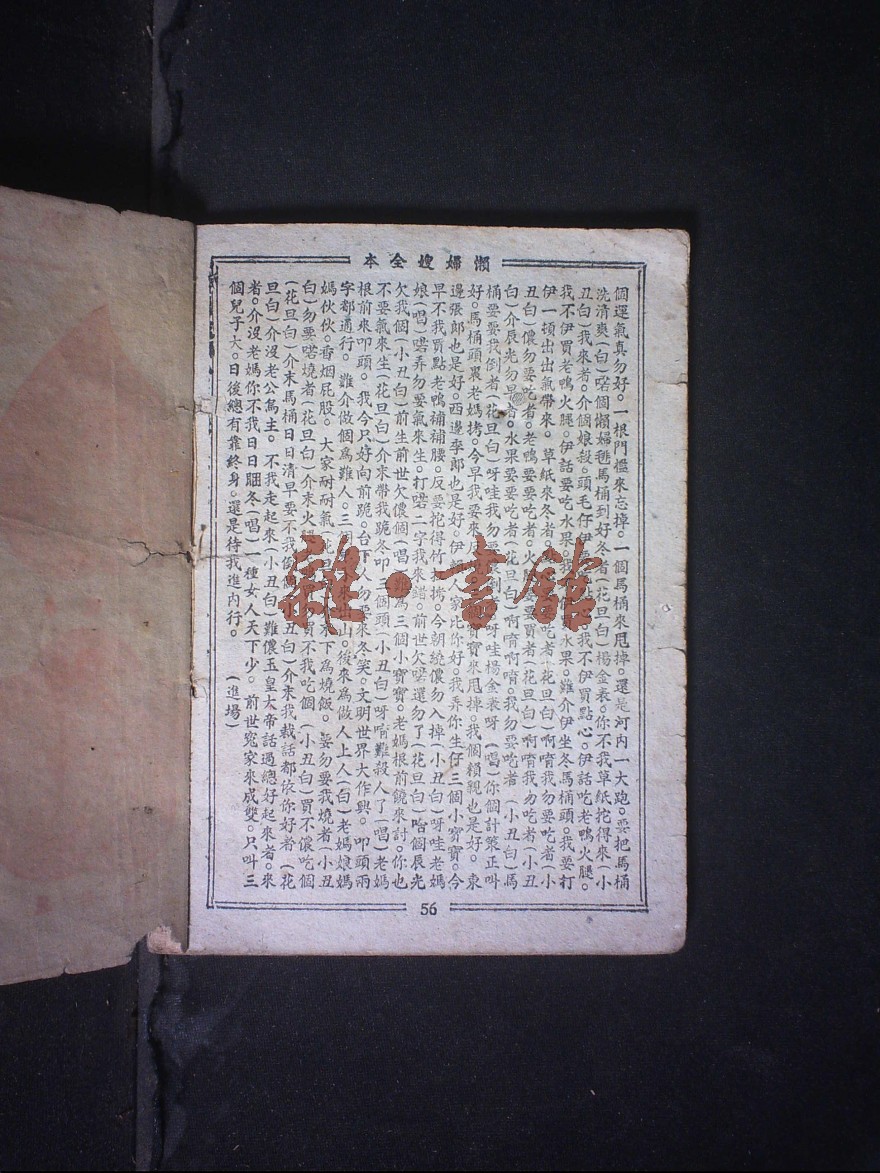 懶婦嫂全本
個運氣真勿好。一根門檻來忘掉。一個馬桶來甩掉。還是河內一大跑。要把馬桶
洗清爽(白)喏個懶婦毪馬桶到好冬者(花旦白)楊金袁。你不我草紙挖得來(小
丑白)我來者。介個娘殺。頭毛仔伊點。我不伊買點心。伊話吃老鴨火腿。
我不伊買老鴨火腿。伊話要吃水果。我水果。難介伊坐冬馬桶頭。我要打
伊一頓出出氣帶來。草紙來冬者。吃者(花旦白)啊唷我勿要吃者(小
丑白)儂勿要吃者。老鴨要要吃者。火要買者(花旦白)啊唷我勿吃者(小丑
白)介辰光勿早者。水果要要吃者(花旦白)啊唷啊唷。我勿要吃者(小丑白)馬
桶要要我倒者(花旦白)呀哇我勿到呀哇楊金袁呀(唱)你個計策正叫
好。馬桶頭裏老媽拷。今早我要來寶寶來甩掉。我個賴親也是好。東
邊張郎也是好。西邊李郎也是好。伊人家比你好。我弄你生仔三個小寶寶。今
早不我買點老鴨補補腰。反要挖得竹拷。今朝繞儂勿入掉(小丑白)呀哇老媽
娘(唱)喏弄勿要氣來生。打喏一字我來錯。前世欠喏還勿了(花旦白)啥個辰光
欠我個(小丑白)前生前世欠儂個(唱)難為三個小寶寶。老媽根前饒來討。你也
不要氣來生(花旦白)介來帶我跪冬叩三個頭(小丑白)呀唷難殺人了(唱)老媽
根前來叩頭。我今只好向前跪。台下人勿要來冬笑。文明世界大作興。叩頭兩
字都通行。難介做個為難人。三來出山。後來為做人上人(白)老媽娘媽
媽伙伙。香烟屁股。大家耐耐氣花旦來下為燒飯。要勿要我燒者(小丑
白)勿要喏燒者(花旦白)介來火勿買不我吃個(小丑白)買不儂吃個
(花旦白)介末馬桶日日清早要不我倒個(小丑白)介來我載話都依你好者(花
旦白)介沒老公為主。不我走起來(小丑白)難儂玉皇大帝話過總好起來者。來
者。介沒老媽你不我日日睏冬(唱)一種女人天下少。前世寃家來成雙。只叫三
個兒子大。日後總有靠終身。還是待我進內行。(進場)
56
雜·書館